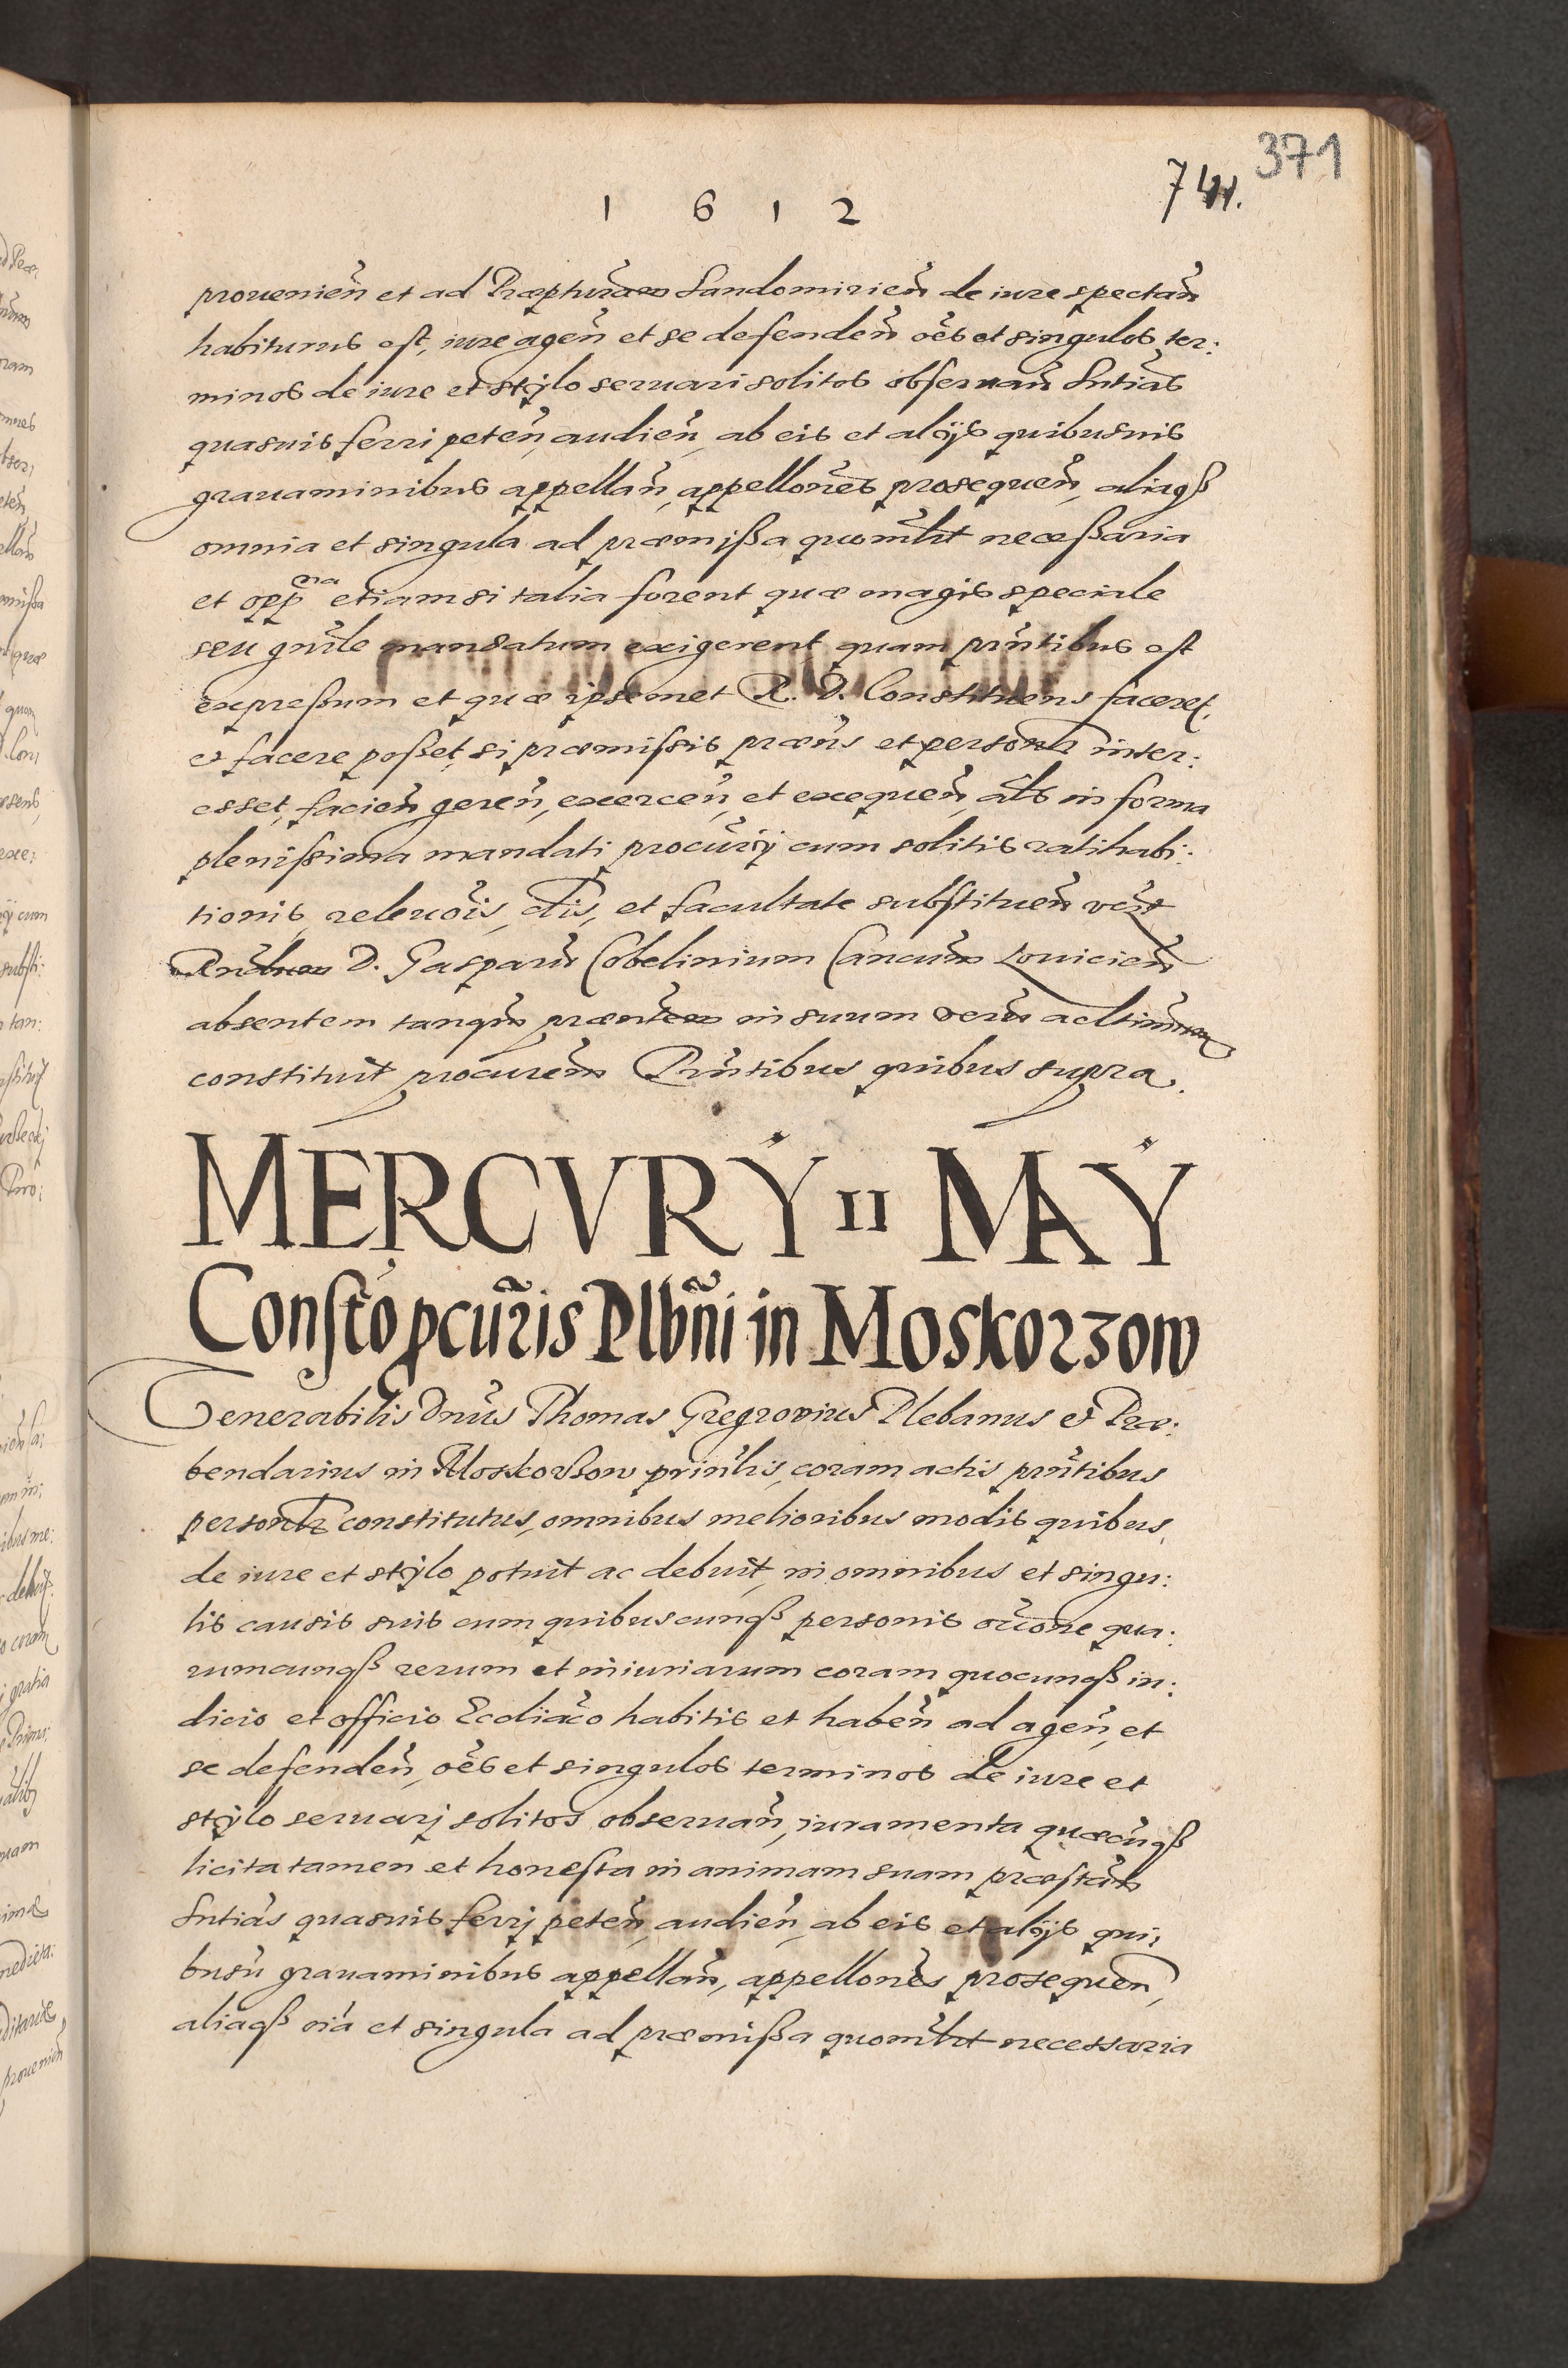 371
741.
1 6 1 2
prouenien̄ et ad Præpturam Sandomirien̄ de iure spectan̄
habiturus est, iure agen̄ et se defenden̄ oēs et singulos ter:
minos de iure et stylo seruari solitos obseruan̄ Sntias
quasuis ferri peten̄, audien̄, ab eis et alijs quibusuis
grauaminibus appellan̄, appellones prosequen̄, aliaqß
omnia et singula ad præmißa quomlt necessaria
et opp̄na etiamsi talia forent quæ magis speciale
seu gnrle mandatum exigerent quam pn̄tibus est
expreßum et quæ ipsemet R. D. Constituens faceret,
et facere poßet, si præmissis præn̄s et personlr inter:
esset, facien̄ geren̄, exercen̄, et exequen̄, als in forma
plenissima mandati procurij cum solitis ratihabi:
tionis, releuois, clis, et facultate substituen̄
D. Gasparu Cobelinium Cancum Louicien̄
absentem tanqm præntem in suum veru
constituit procurem Pn̄tibus quibus supra.
MERCVRY II MAY
Consto pcuris Plbni in Moskorzow
Venerabilis Dnus Thomas Gregrovius Plebanus et Præ:
bendarius in Moskorzow prin̄lis, coram actis pn̄tibus
personlr constitutus, omnibus melioribus modis quibus,
de iure et stylo potuit ac debuit, in omnibus et singu:
lis causis suis cum quibuscunqß personis occone qua:
rumcunqß rerum et iniuriarum coram quocunqß iu:
dicio et officio Eccliaco habitis et haben̄ ad agen̄, et
se defenden̄, oēs et singulos terminos de iure et
stylo seruarj solitos obseruan̄, iuramenta quæcūqß
licita tamen et honesta in animam suam præstan̄
Sntias quasuis ferrj peten̄, audien̄, ab eis et alijs qui:
busu grauaminibus appellan̄, appellones prosequen̄,
aliaqß oia et singula ad præmißa quomlt necessaria